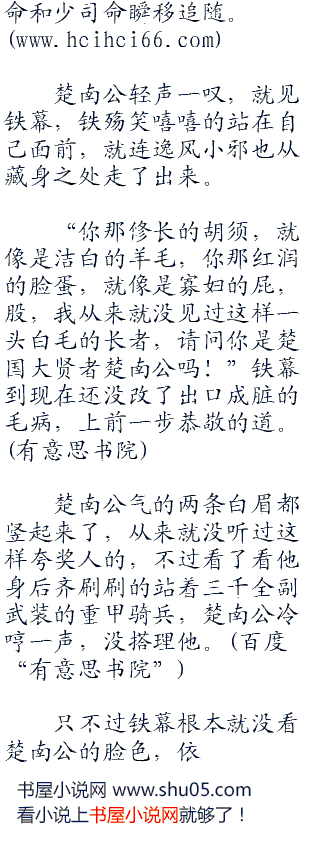 命和少司命瞬移追随。
(www.hcihci66.com)
楚南公轻声一叹，就见
铁幕，铁殇笑嘻嘻的站在自
己面前，就连逸风小邪也从
藏身之处走了出来。
“你那修长的胡须，就
像是洁白的羊毛，你那红润
的脸蛋，就像是寡妇的屁，
股，我从来就没见过这样一
头白毛的长者，请问你是楚
国大贤者楚南公吗！”铁幕
到现在还没改了出口成脏的
毛病，上前一步恭敬的道。
(有意思书院)
楚南公气的两条白眉都
竖起来了，从来就没听过这
样夸奖人的，不过看了看他
身后齐刷刷的站着三千全副
武装的重甲骑兵，楚南公冷
哼一声，没搭理他。(百度
“有意思书院”)
只不过铁幕根本就没看
楚南公的脸色，依
书屋小说网 www.shu05.com
看小说上书屋小说网就够了！